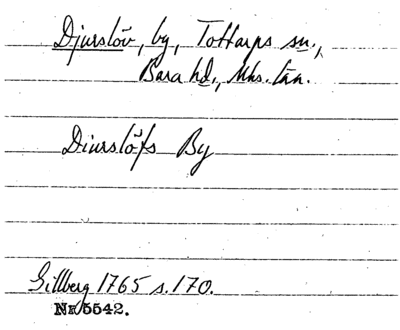 Djurslöv, by, Tottarps sn.,
Bara hd., Mhs. län.
Diurslöfs By
Gillberg 1765 s. 170.
NR/5542.